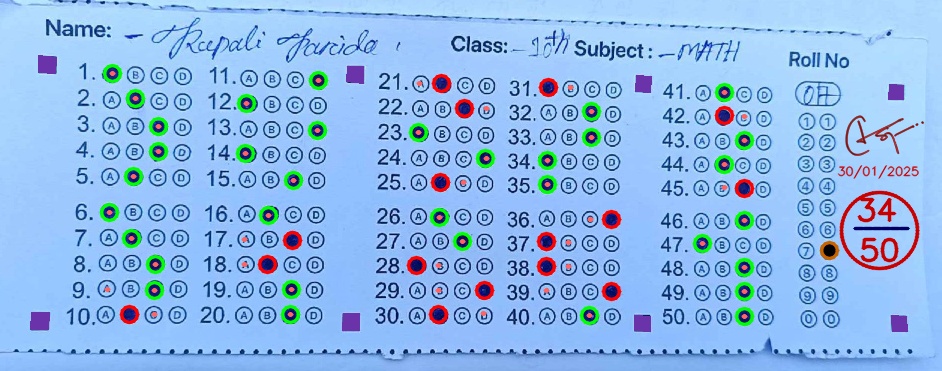 Name: - Rupali Parida Class: - 10th Subject: - MATH
Roll No
07
1. B C D
2. A C D
3. A B D
4. A B D
5. A C D
6. B C D
7. A C D
8. A B D
9. A B D
10. A C D
11. A B C
12. B C D
13. A B C
14. B C D
15. A B D
16. A C D
17. A B D
18. A C D
19. A B D
20. A B D
21. A C D
22. A B D
23. B C D
24. A B C
25. A C D
26. A C D
27. A B D
28. B C D
29. A B C
30. A C D
31. B C D
32. A B D
33. A B D
34. B C D
35. B C D
36. A B C
37. B C D
38. B C D
39. A B C
40. A B D
41. A C D
42. A C D
43. A B D
44. A C D
45. A B D
46. A B D
47. B C D
48. A B D
49. A B D
50. A B D
1 1
2 2
3 3
4 4
5 5
6 6
7
8 8
9 9
0 0
30/01/2025
34
50